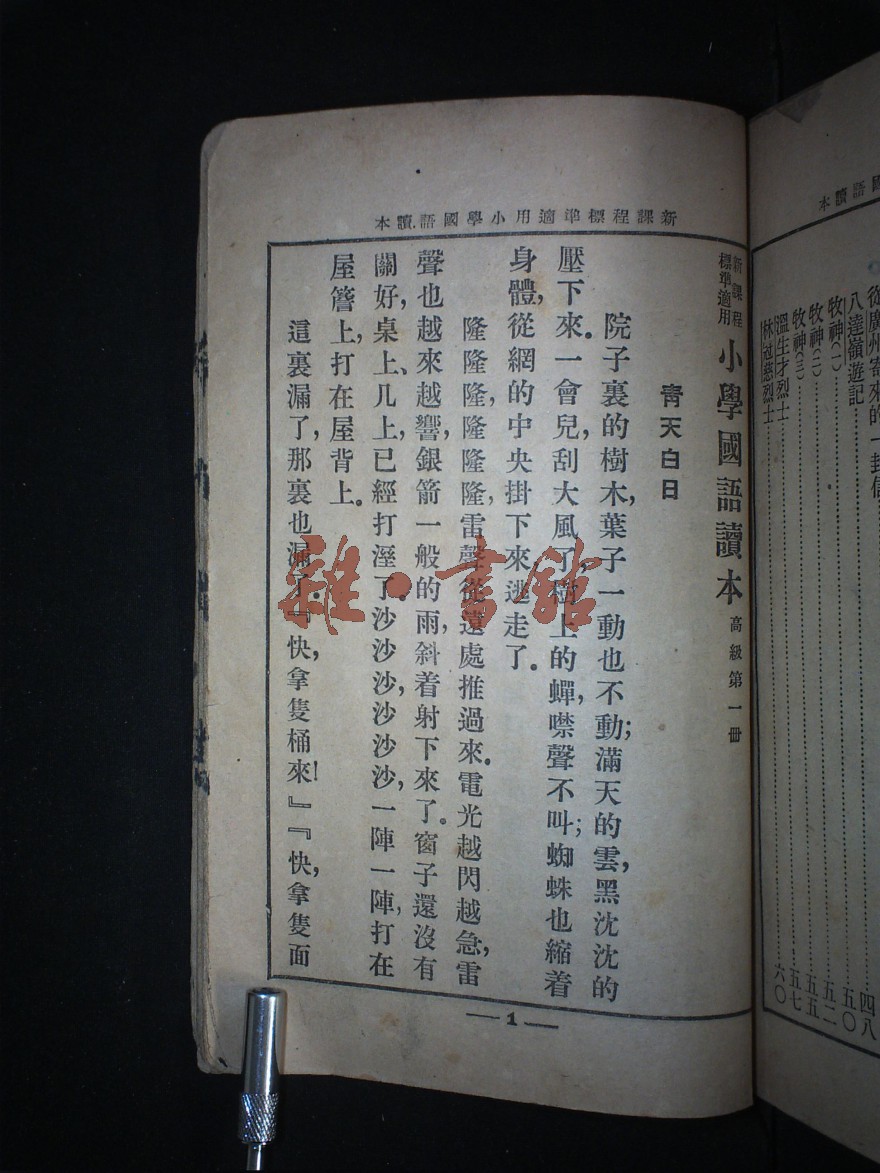 國語讀本
從廣州寄來的一封信
四八
八達嶺遊記………五〇
牧神(一)………五二
牧神(二)………五五
牧神(三)………五七
溫生才烈士………六〇
林冠慈烈士
新課程標準適用小學國語讀本
新課程標準適用 小學國語讀本 高級第一冊
青天白日
院子裏的樹木,葉子一動也不動;滿天的雲,黑沈沈的
壓下來。一會兒,刮大風了,樹上的蟬,噤聲不叫;蜘蛛也縮着
身體,從網的中央掛下來逃走了。
隆隆隆,隆隆隆,雷聲從遠處推過來。電光越閃越急,雷
聲也越來越響,銀箭一般的雨,斜着射下來了。窗子還沒有
關好,桌上、几上,已經打溼了。沙沙沙,沙沙沙,一陣一陣,打在
屋簷上,打在屋背上。
這裏漏了,那裏也漏了。『快,拿隻桶來!』『快,拿隻面
—1—
雜·書館